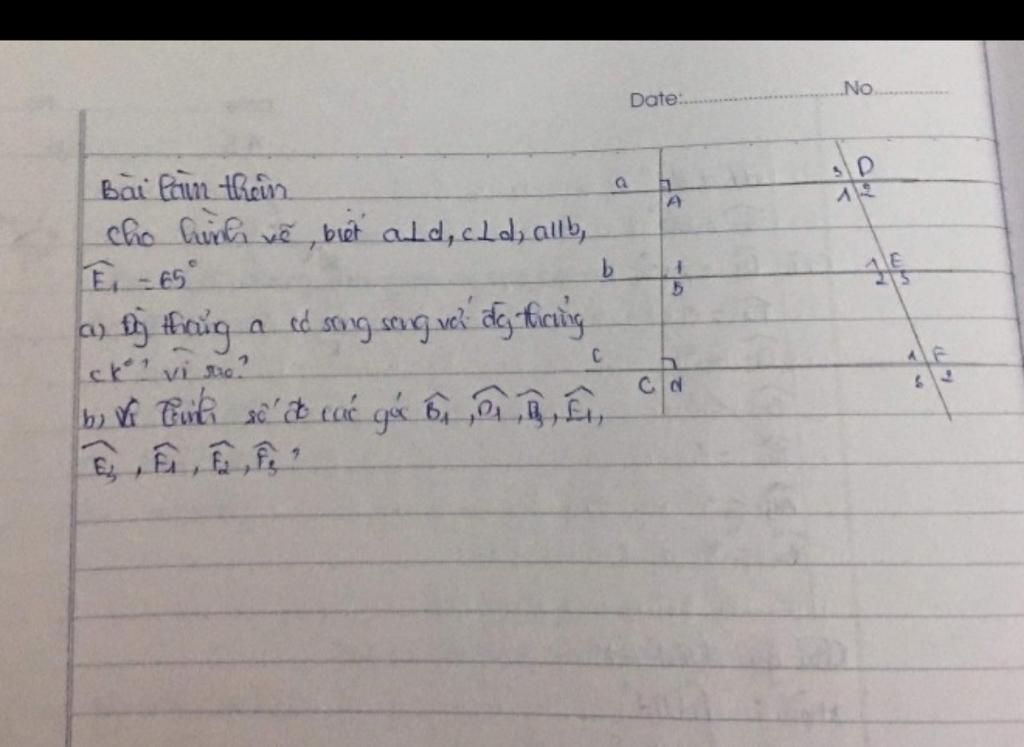 Date: No
Bài làm thêm
Cho hình vẽ, biết a⊥d, c⊥d, a//b,
Ê₁ = 65°
a) Đg thẳng a có song song với đg thẳng
c k° ? vì sao?
b) tính số đo các góc B̂₁, D̂₁, Ê₁,
Ê₃, F̂₂, F̂₃ ?
a
A
3 D
1 2
b
1
B
1 E
2 3
c
C d
1 F
3 2